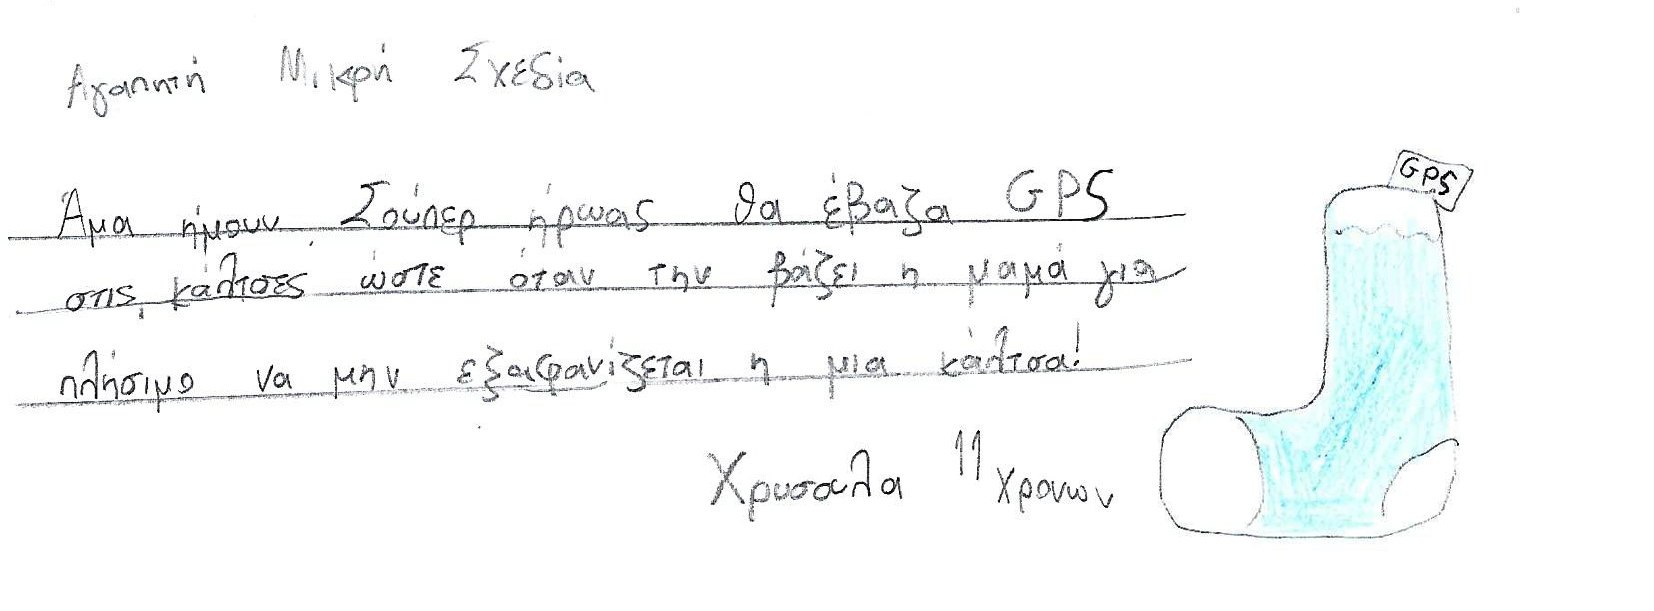 Αγαπητή Μικρή Σχεδία
GPS
Άμα ήμουν Σούπερ ήρωας θα έβαζα GPS
στις κάλτσες ώστε όταν την βάζει η μαμά για
πλήσιμο να μην εξαφανίζεται η μια κάλτσα!
Χρυσαυλα 11 χρονων